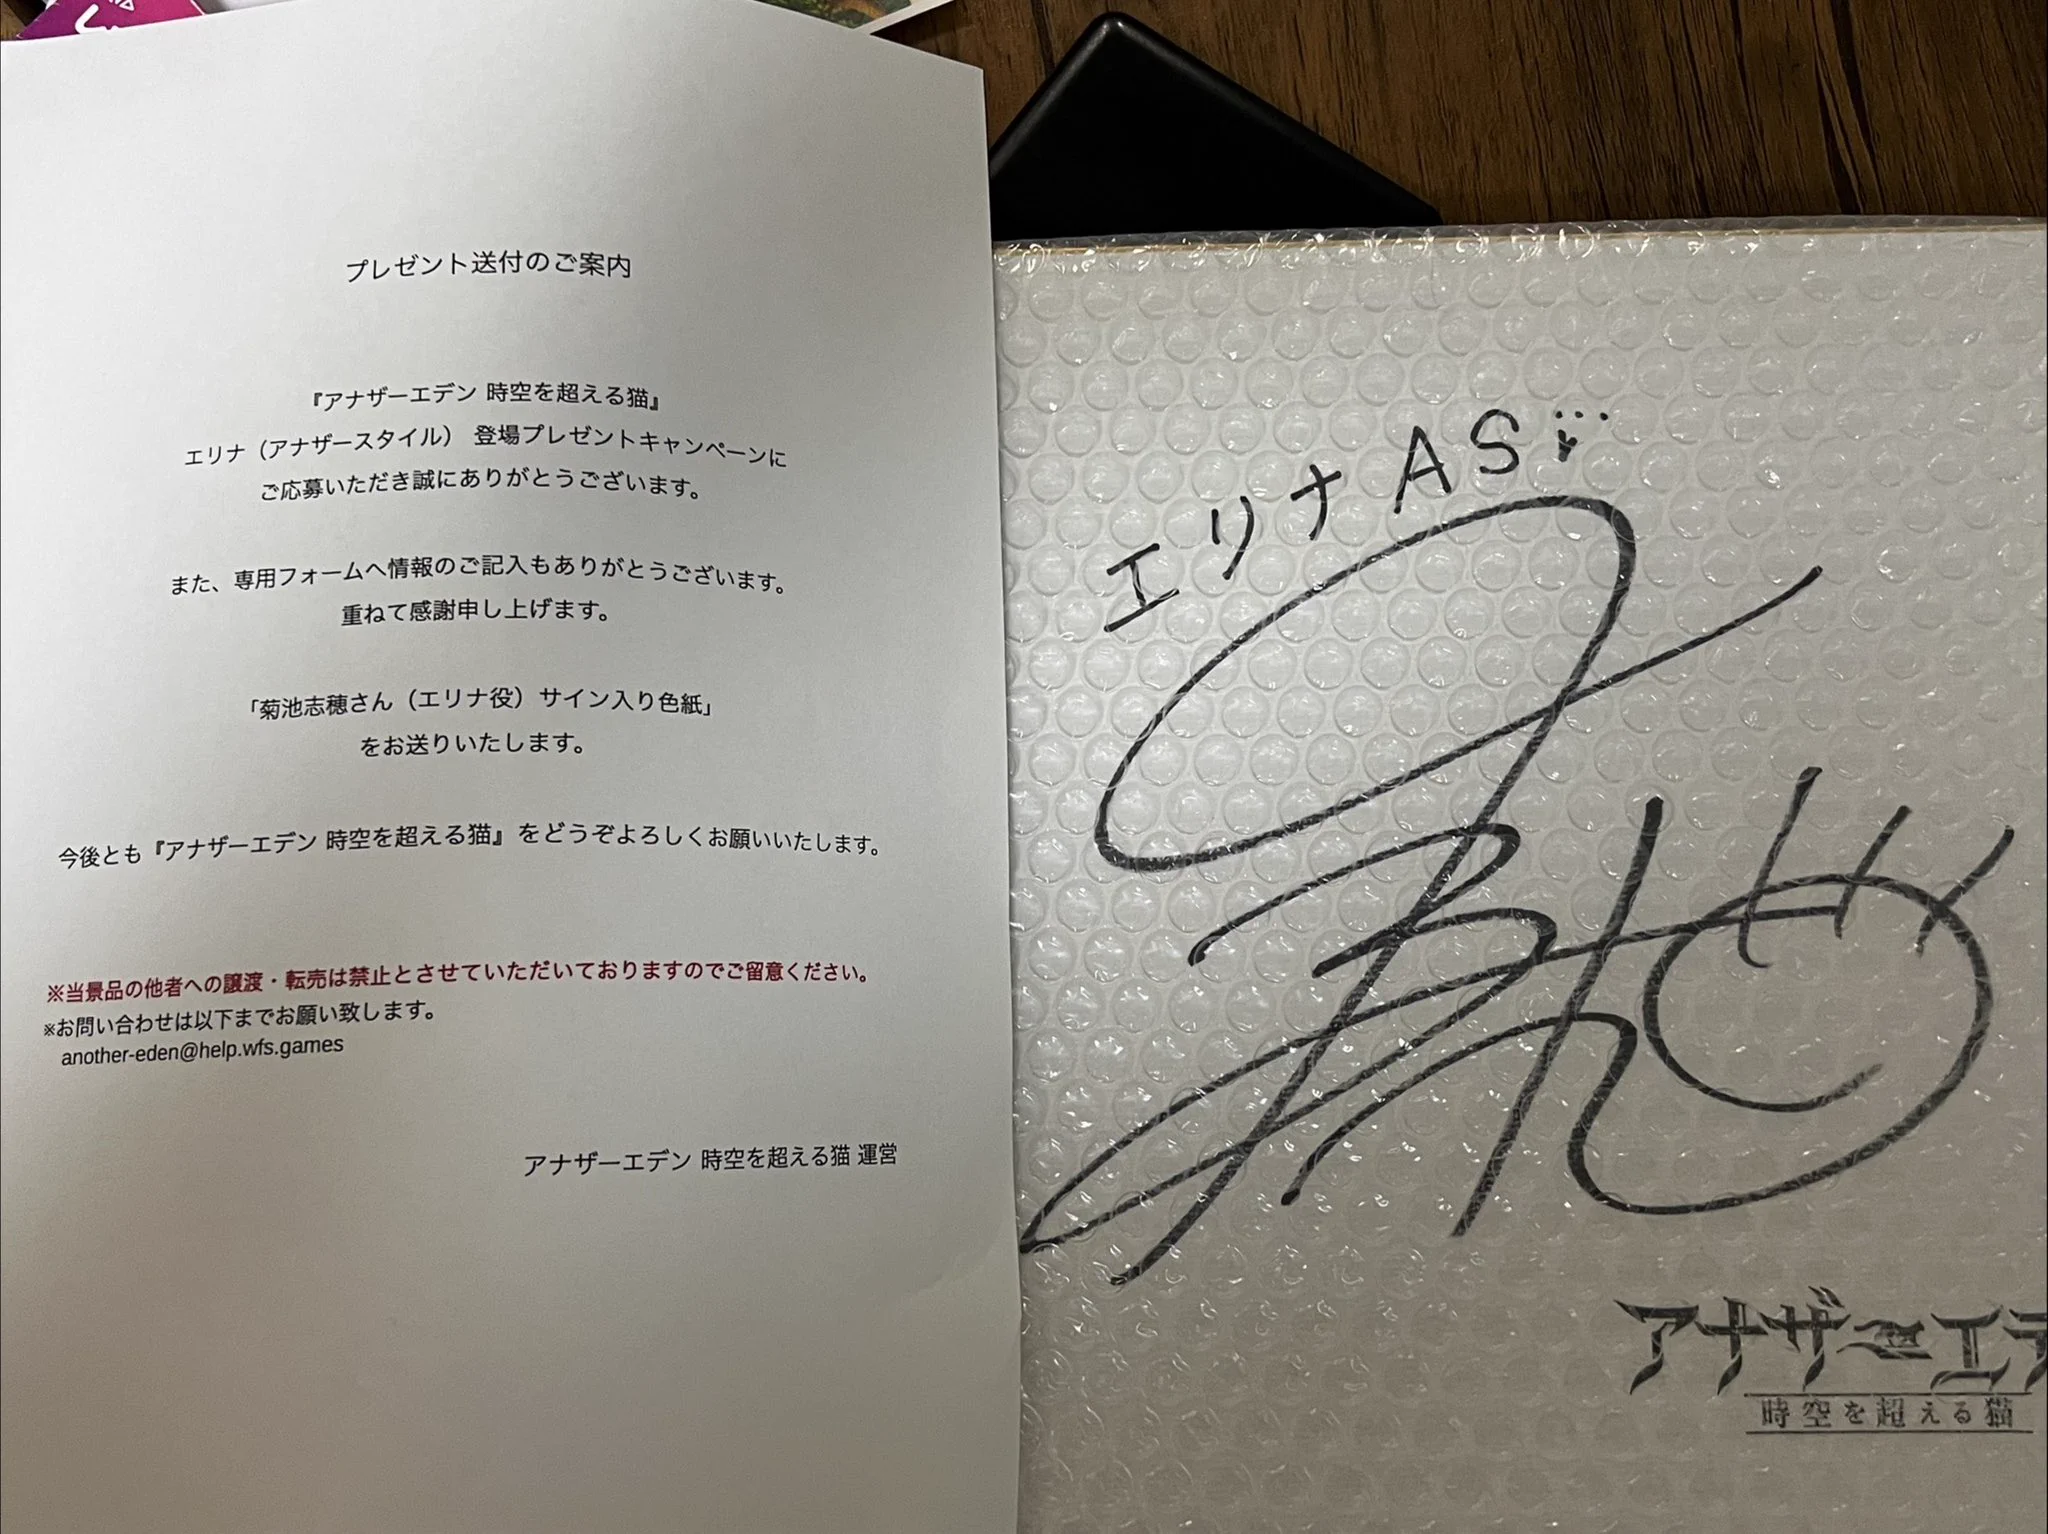 プレゼント送付のご案内
『アナザーエデン 時空を超える猫』
エリナ（アナザースタイル） 登場プレゼントキャンペーンに
ご応募いただき誠にありがとうございます。
また、専用フォームへ情報のご記入もありがとうございます。
重ねて感謝申し上げます。
「菊池志穂さん（エリナ役）サイン入り色紙」
をお送りいたします。
今後とも『アナザーエデン 時空を超える猫』をどうぞよろしくお願いいたします。
※当景品の他者への譲渡・転売は禁止とさせていただいておりますのでご留意ください。
※お問い合わせは以下までお願い致します。
another-eden@help.wfs.games
アナザーエデン 時空を超える猫 運営
エリナAS
アナザーエデ
時空を超える猫